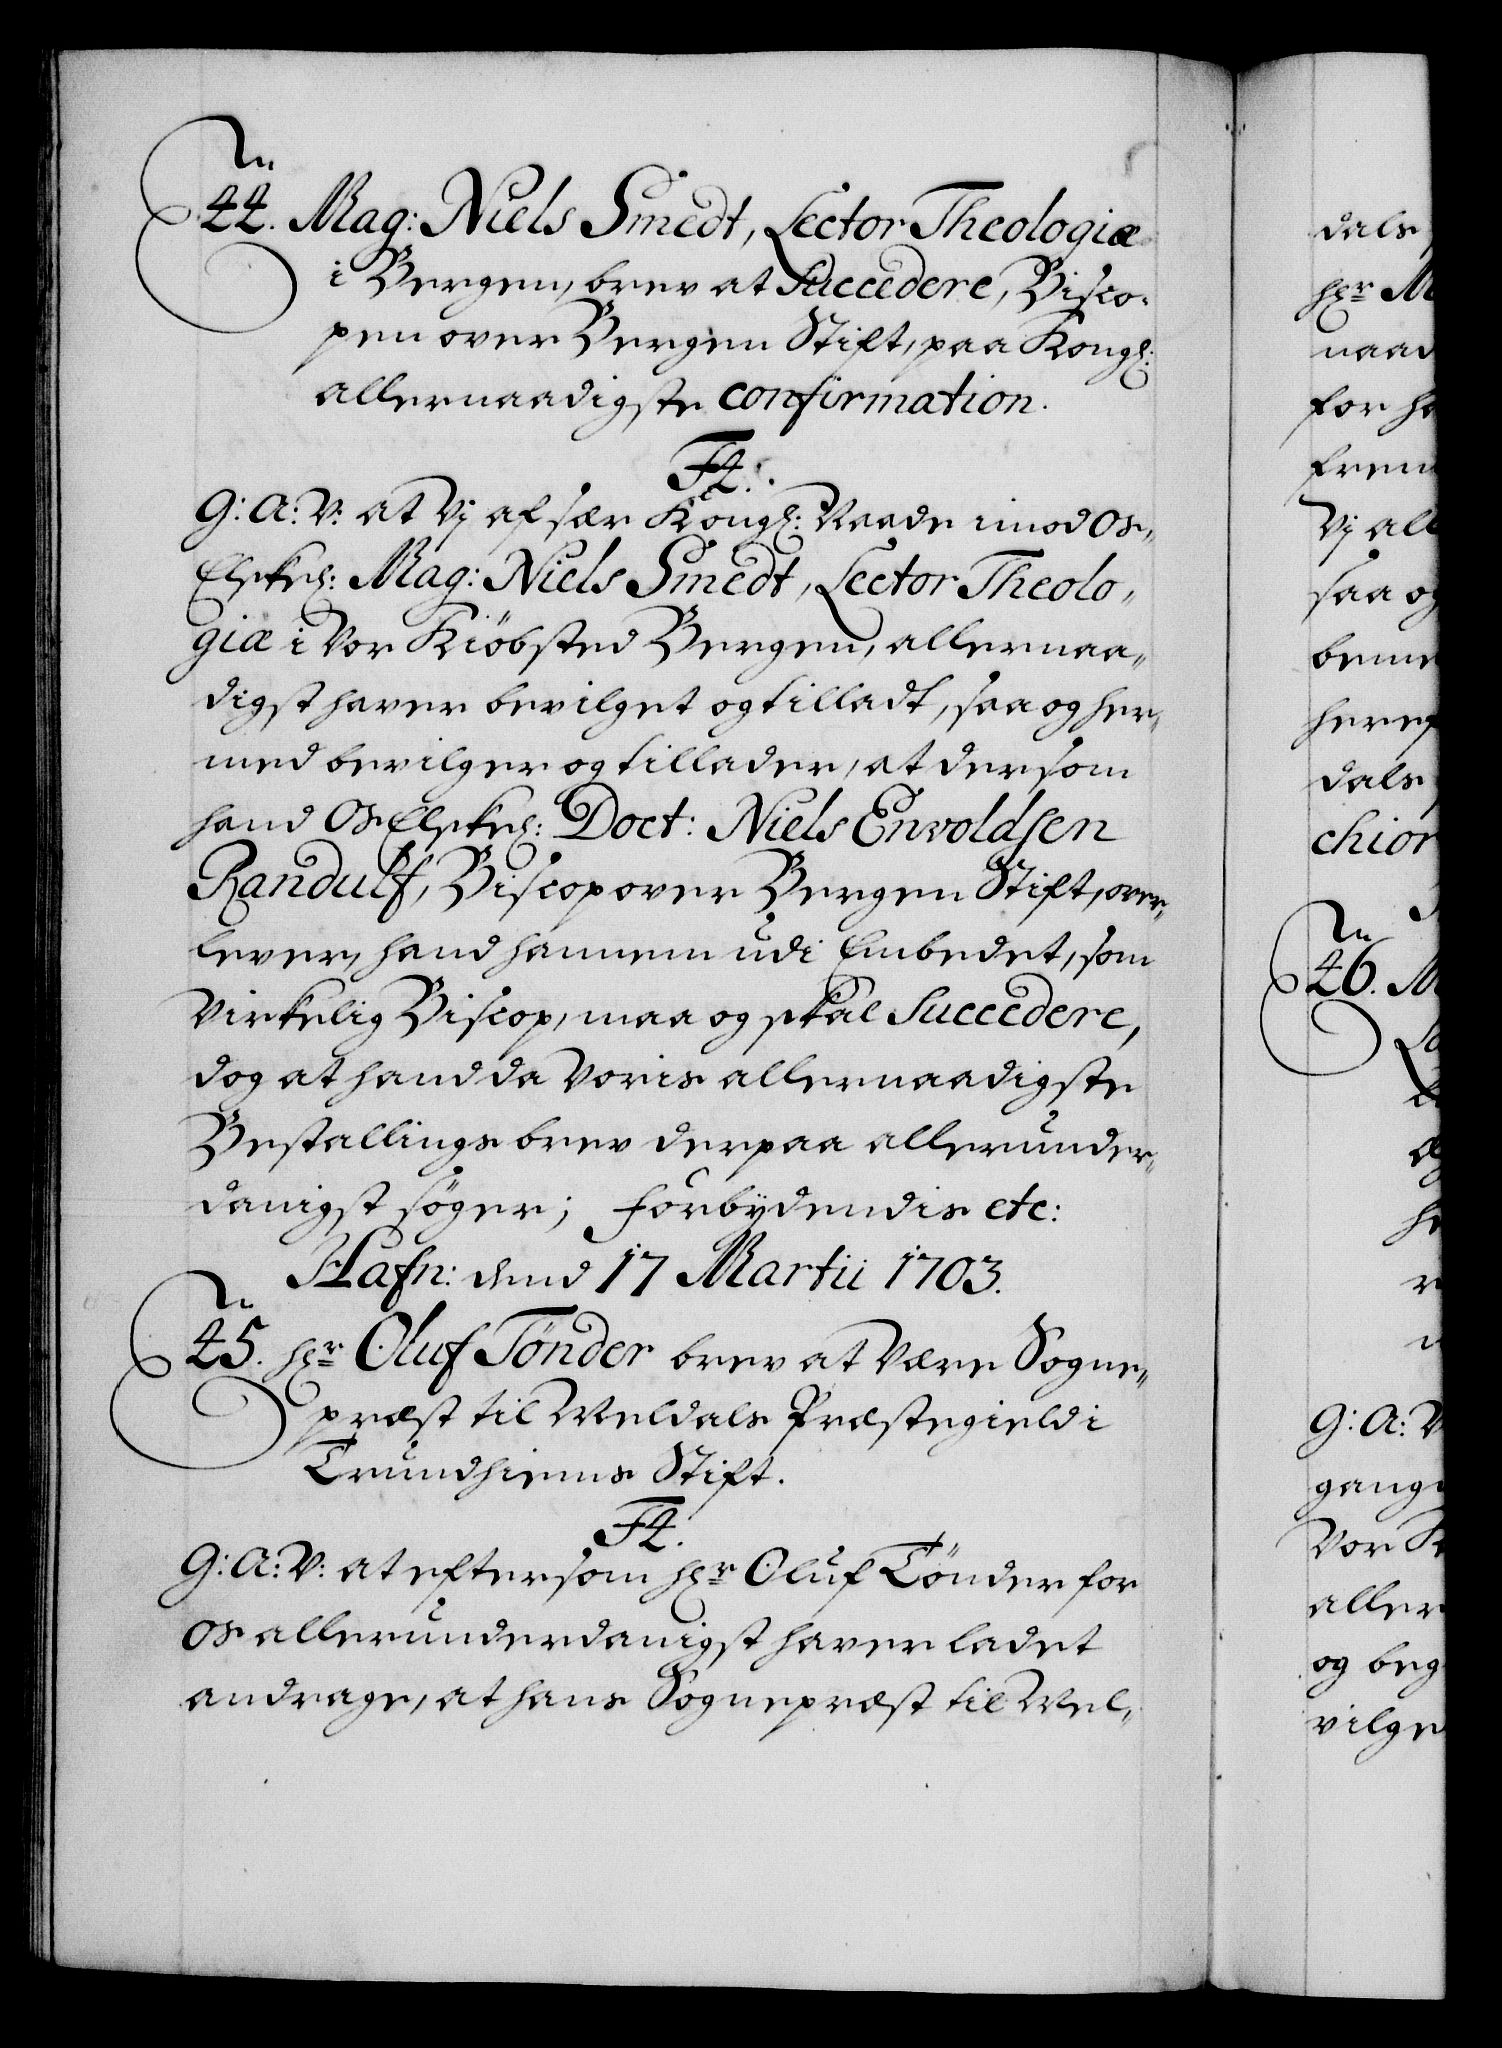 44. Mag: Niels Smedt, Lector Theologiæ
i Bergen, brev at Succedere, Bisco-
pen over Bergen Stift, paa Kongl:
allernaadigste confirmation.
F4.
G: A: V: at Vj af sær Kongl: Naade imod Os
Elskel: Mag: Niels Smedt, Lector Theolo-
giæ i Vor Kiöbsted Bergen, allernaa-
digst haver bevilget og tilladt, saa og her-
med bevilger og tillader, at dersom
hand Os Elskel: Doct: Niels Envoldsen
Randulf, Biscop over Bergen Stift, over-
lever, hand hannem udi Embedet, som
Virkelig Biscop, maa og skal Succedere,
dog at hand da Voris allernaadigste
Bestallings brev derpaa allerunder-
danigst söger; Forbÿdendis etc:
Hafn: dend 17 Martii 1703.
45. Hr Oluf Tönder brev at Være Sogne-
præst til Meldals Præstegield i
Trundhiems Stift.
F4.
G: A: V: at eftersom Hr Oluf Tönder for
Os allerunderdanigst haver ladet
andrage, at hans Sognepræst til Mel-
dals
Hr
naad
for
Vj all
saa og
dals
chior
46.
G: A: V
Vor
aller
og beg
vilge